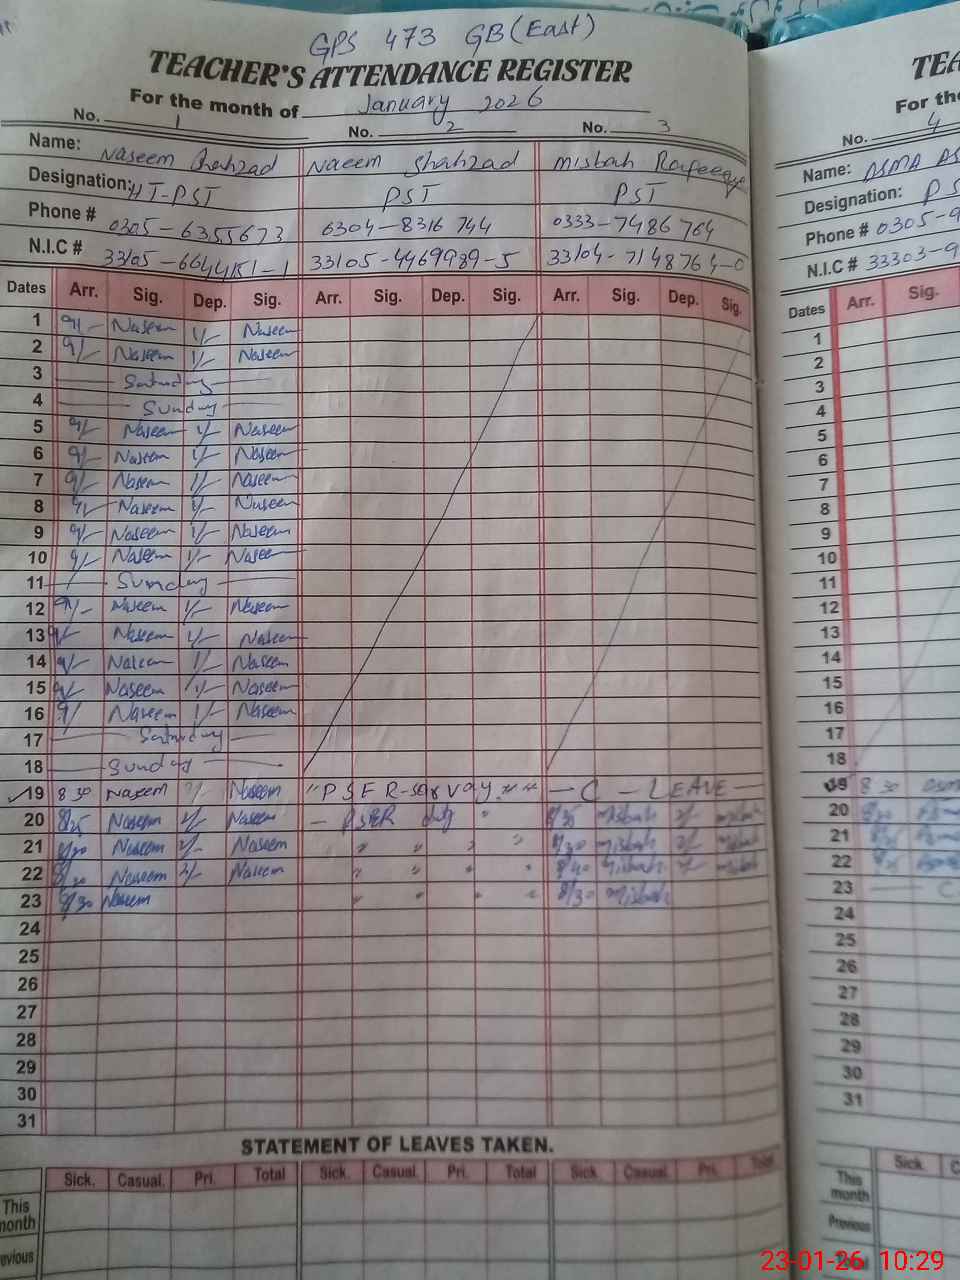 GPS 473 GB (East)
TEACHER'S ATTENDANCE REGISTER
For the month of January 2026
No. 1 No. 2 No. 3
Name: Naseem Shahzad Naeem Shahzad Misbah
Designation: HT-PST PST PST
Phone # 0305-6355673 6304-8316 744 0333-7486764
N.I.C # 33105-4469989-5 33104-7148764-0
Dates Arr. Sig. Dep. Sig. Arr. Sig. Dep. Sig. Arr. Sig. Dep. Sig.
1 9/- Naseem 1/- Naseem
2 9/- Naseem 1/- Naseem
3 Saturday
4 Sunday
5 9/- Naseem 1/- Naseem
6 9/- Naseem 1/- Naseem
7 9/- Naseem 1/- Naseem
8 9/- Naseem 1/- Naseem
9 9/- Naseem 1/- Naseem
10 9/- Naseem 1/- Naseem
11 Sunday
12 9/- Naseem 1/- Naseem
13 9/- Naseem 1/- Naseem
14 9/- Naseem 1/- Naseem
15 9/- Naseem 1/- Naseem
16 9/- Naseem 1/- Naseem
17 Saturday
18 Sunday
19 8 30 Naseem Naseem "PSER-survay" " — C — LEAVE —
20 8/25 Naseem 2/- Naseem — PSER duty " 8/35 Misbah 2/- Misbah
21 8/30 Naseem 2/- Naseem " " " " 8/30 Misbah 2/- Misbah
22 8/30 Naseem 2/- Naseem " " " " 8/40 Misbah 2/- Misbah
23 8/30 Naseem " " " " 8/30 Misbah
24
25
26
27
28
29
30
31
STATEMENT OF LEAVES TAKEN.
Sick. Casual. Pri. Total Sick. Casual. Pri. Total Sick. Casual. Pri. Total
This
month
evious
TEA
For the
No. 4
Name: ASMA
Designation: PS
Phone # 0305-9
N.I.C # 33303-9
Dates Arr. Sig.
1
2
3
4
5
6
7
8
9
10
11
12
13
14
15
16
17
18
19 8 30
20
21
22
23 C
24
25
26
27
28
29
30
31
Sick. C
This
month
Previous
Total
23-01-26 10:29